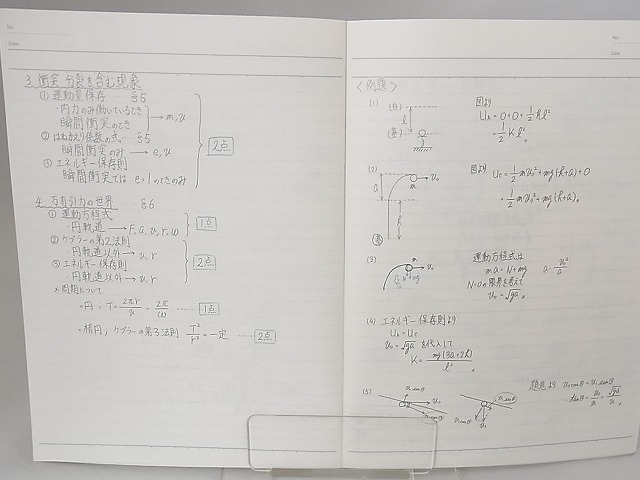 No.
Date
3. 衝突 分裂を含む現象
① 運動量保存 §5
・内力のみ働いているとき
・瞬間衝突のとき
→ m, v
② はねかえり係数の式 §5
瞬間衝突のみ → e, v
③ エネルギー保存則
瞬間衝突では e=1のときのみ
2点
4. 万有引力の世界 §6
① 運動方程式
・円軌道 → F, a, v, r, ω
1点
② ケプラーの第2法則
・円軌道以外 → v, r
③ エネルギー保存則
・円軌道以外 → v, r
2点
※周期について
・円: T = 2πr/v = 2π/ω … 1点
・楕円, ケプラーの第3法則 T²/r³ = 一定 … 2点
No.
Date
<例題>
(1) (自)
l
(基)
図より
U_A = 0 + 0 + 1/2 kl²
= 1/2 kl²。
(2)
a
m
v₀
h
図より U_C = 1/2 mv₀² + mg(h+a) + 0
= 1/2 mv₀² + mg(h+a)。
(3)
m
v₀
N
mg
運動方程式は
ma = N + mg a = v²/a
N=0の限界を考えて
v₀ = √ga。
(4) エネルギー保存則より
U_A = U_C
v₀ = √ga を代入して
K = mg(3a+2h)/l²。
(5)
v₀
題意より v₀cosθ = v₁sinθ
∴ tanθ = v₀/v₁ = √ga/v₁。